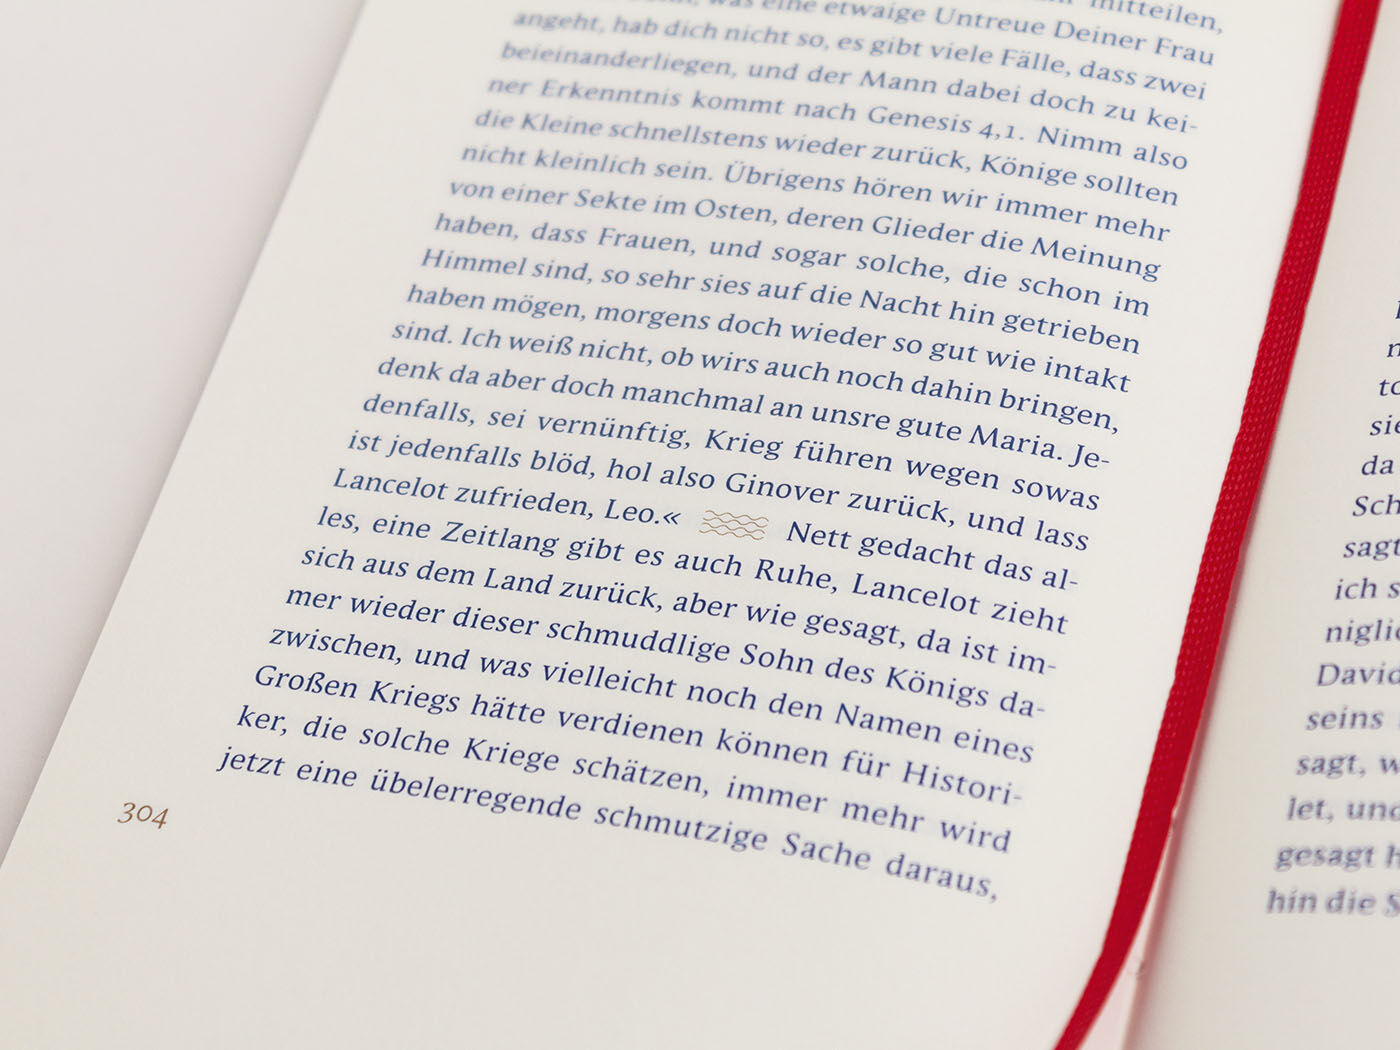 mitteilen,
was eine etwaige Untreue Deiner Frau
angeht, hab dich nicht so, es gibt viele Fälle, dass zwei
beieinanderliegen, und der Mann dabei doch zu kei-
ner Erkenntnis kommt nach Genesis 4,1. Nimm also
die Kleine schnellstens wieder zurück, Könige sollten
nicht kleinlich sein. Übrigens hören wir immer mehr
von einer Sekte im Osten, deren Glieder die Meinung
haben, dass Frauen, und sogar solche, die schon im
Himmel sind, so sehr sies auf die Nacht hin getrieben
haben mögen, morgens doch wieder so gut wie intakt
sind. Ich weiß nicht, ob wirs auch noch dahin bringen,
denk da aber doch manchmal an unsre gute Maria. Je-
denfalls, sei vernünftig, Krieg führen wegen sowas
ist jedenfalls blöd, hol also Ginover zurück, und lass
Lancelot zufrieden, Leo.« Nett gedacht das al-
les, eine Zeitlang gibt es auch Ruhe, Lancelot zieht
sich aus dem Land zurück, aber wie gesagt, da ist im-
mer wieder dieser schmuddlige Sohn des Königs da-
zwischen, und was vielleicht noch den Namen eines
Großen Kriegs hätte verdienen können für Histori-
ker, die solche Kriege schätzen, immer mehr wird
jetzt eine übelerregende schmutzige Sache daraus,
304
sie
da
Sch
sagt
ich s
niglic
David
seins
sagt, w
let, und
gesagt h
hin die S